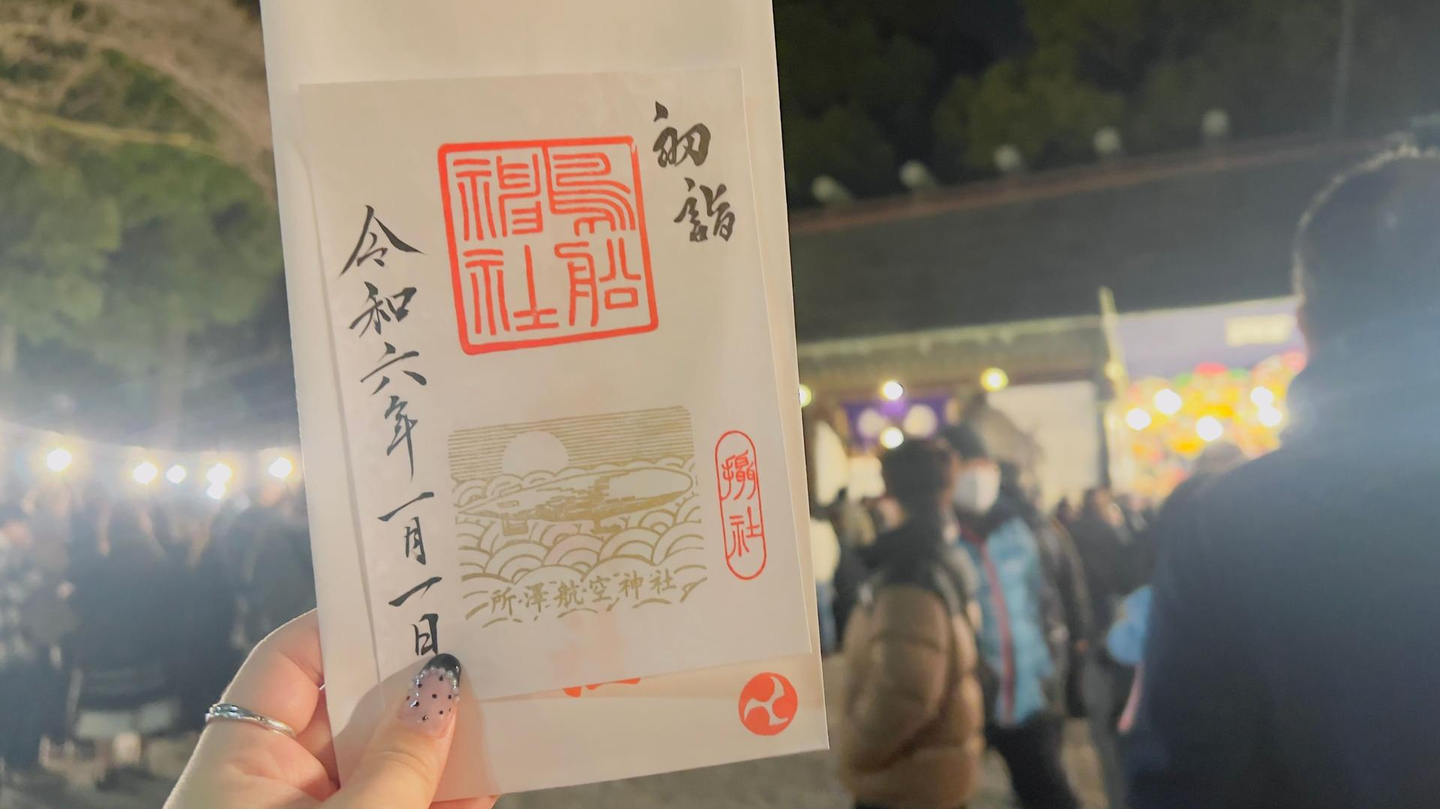 初詣
鳥船
神社
令和六年一月一日
攝社
所澤航空神社